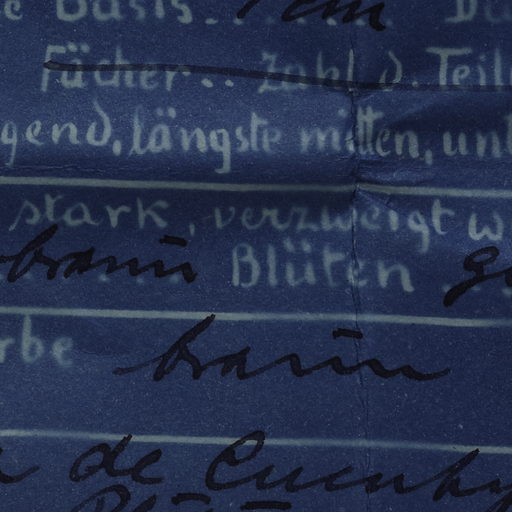 Basis . . 7 cm . . .
Fächer . . Zahl d. Teil
gend, längste mitten, unt
stark, verzweigt w
braun Blüten
rbe braun
de